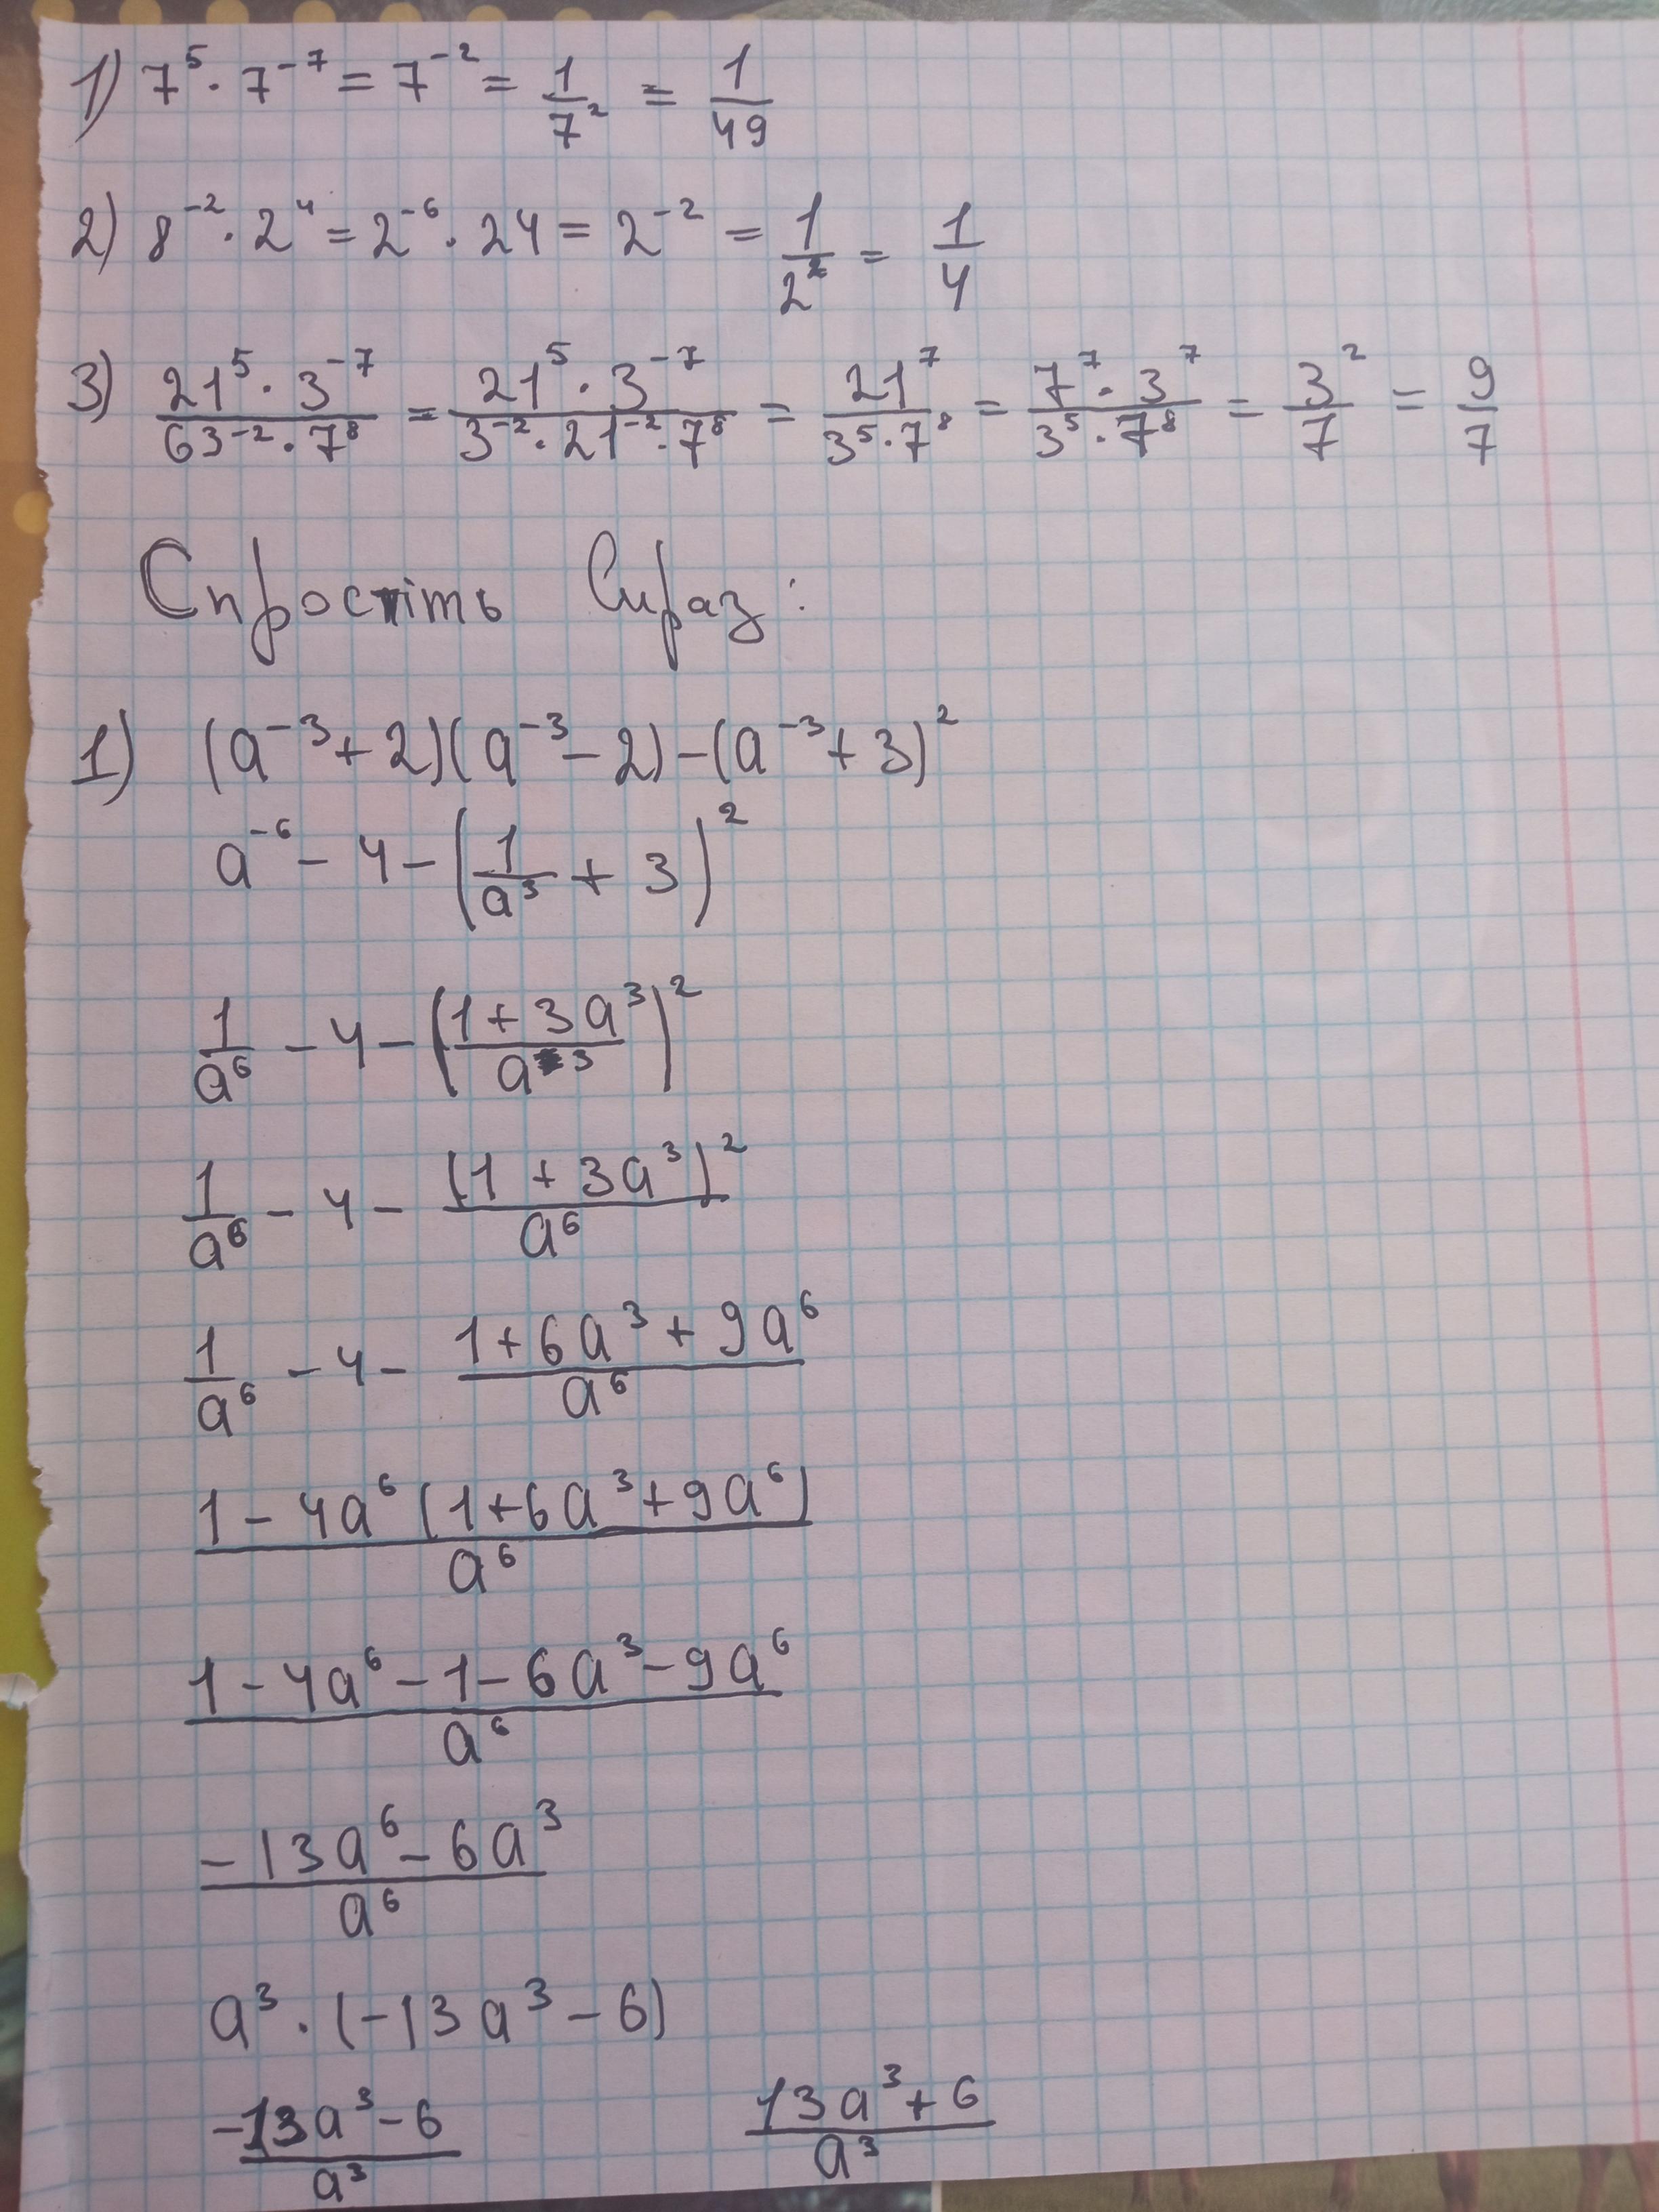 1) 7⁵ · 7⁻⁷ = 7⁻² = 1/7² = 1/49
2) 8⁻² · 2⁴ = 2⁻⁶ · 24 = 2⁻² = 1/2² = 1/4
3) (21⁵ · 3⁻⁷)/(63⁻² · 7⁸) = (21⁵ · 3⁻⁷)/(3⁻² · 21⁻² · 7⁸) = 21⁷/(3⁵ · 7⁸) = (7⁷ · 3⁷)/(3⁵ · 7⁸) = 3²/7 = 9/7
Спростіть Вираз:
1) (a⁻³ + 2)(a⁻³ − 2) − (a⁻³ + 3)²
a⁻⁶ − 4 − (1/a³ + 3)²
1/a⁶ − 4 − ((1 + 3a³)/a³)²
1/a⁶ − 4 − (1 + 3a³)²/a⁶
1/a⁶ − 4 − (1 + 6a³ + 9a⁶)/a⁶
(1 − 4a⁶ (1 + 6a³ + 9a⁶))/a⁶
(1 − 4a⁶ − 1 − 6a³ − 9a⁶)/a⁶
(−13a⁶ − 6a³)/a⁶
a³ · (−13a³ − 6)
(−13a³ − 6)/a³ (13a³ + 6)/a³